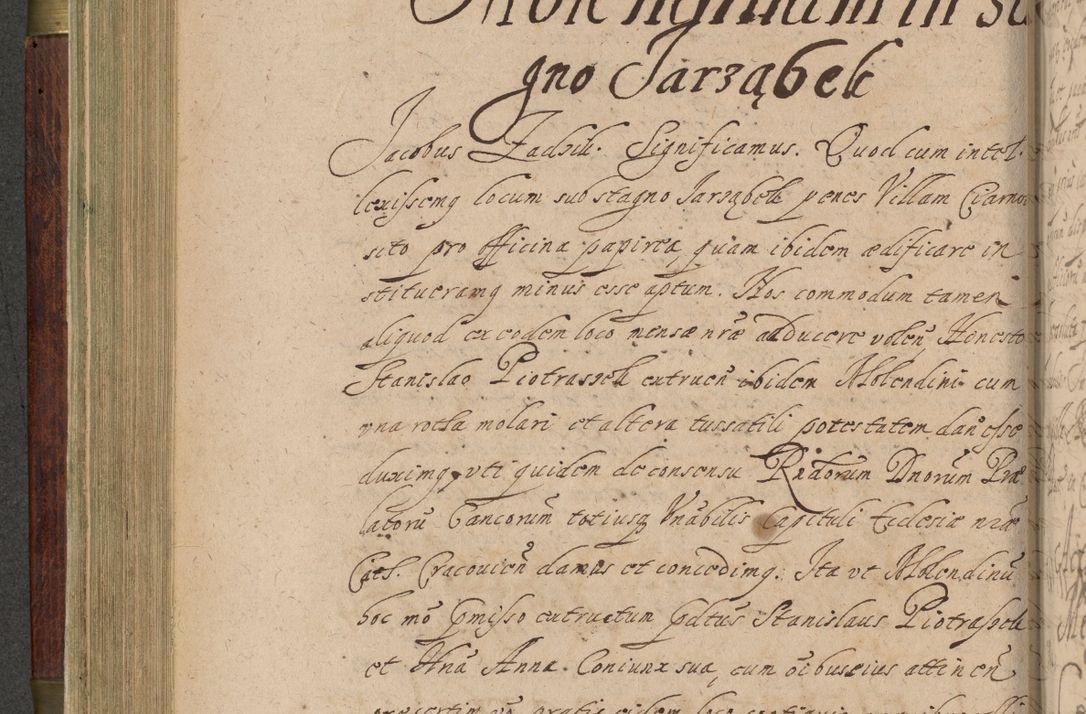 gno Jarząbek
Jacobus Zadzik. Significamus. Quod cum intel-
lexissemq locum sub stagno Jarząbek penes Villam Ciarno
sito pro officina papirea, quam ibidem ædificare in
stitueramq minus esse aptum. Nos commodum tamen
aliquod ex eodem loco mensæ nræ adducere voleñ Honesto
Stanislao Piotraszek extrueñ ibidem Molendini cum
vna rotha molari et altera tussatili potestatem dañ esse
duximq, vti quidem de consensu Rndorum Dnorum Præ
latorũ Cancorum totiusq Vnabilis Capituli Ecclesiæ nræ
Cath. Cracovieñ damus et concedimq. Ita vt Molendinũ
hoc mõ pmisso extructum pdtus Stanislaus Piotraszek
et Hnã Anna Coniunx sua, cum oibus eius attineñ